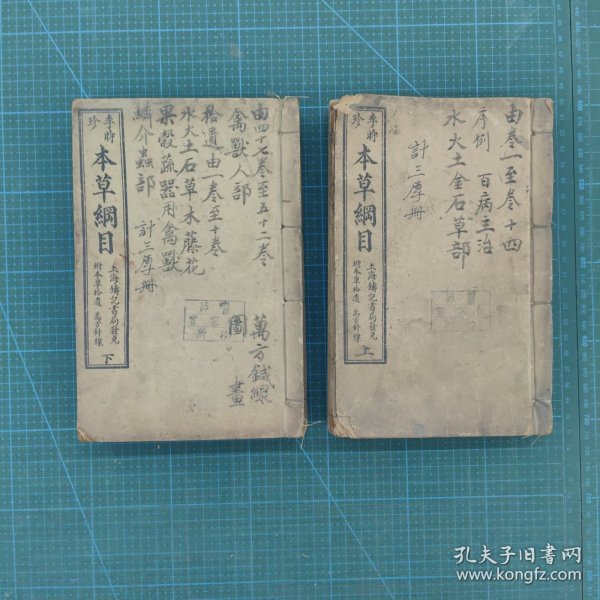 由四十七卷至五十二卷
禽獸人部
拾遺由一卷至十卷
水火土石草木藤花
果穀蔬器用禽獸
鱗介蟲部
計三厚冊
萬方鍼線
圖
畫
李時
珍
本草綱目
上海鑄記書局發兌
附本草拾遺 萬方針線
下
由卷一至卷十四
序例 百病主治
水火土金石草部
計三厚冊
李時
珍
本草綱目
上海鑄記書局發兌
附本草拾遺 萬方針線
上
孔夫子旧书网
www.kongfz.com